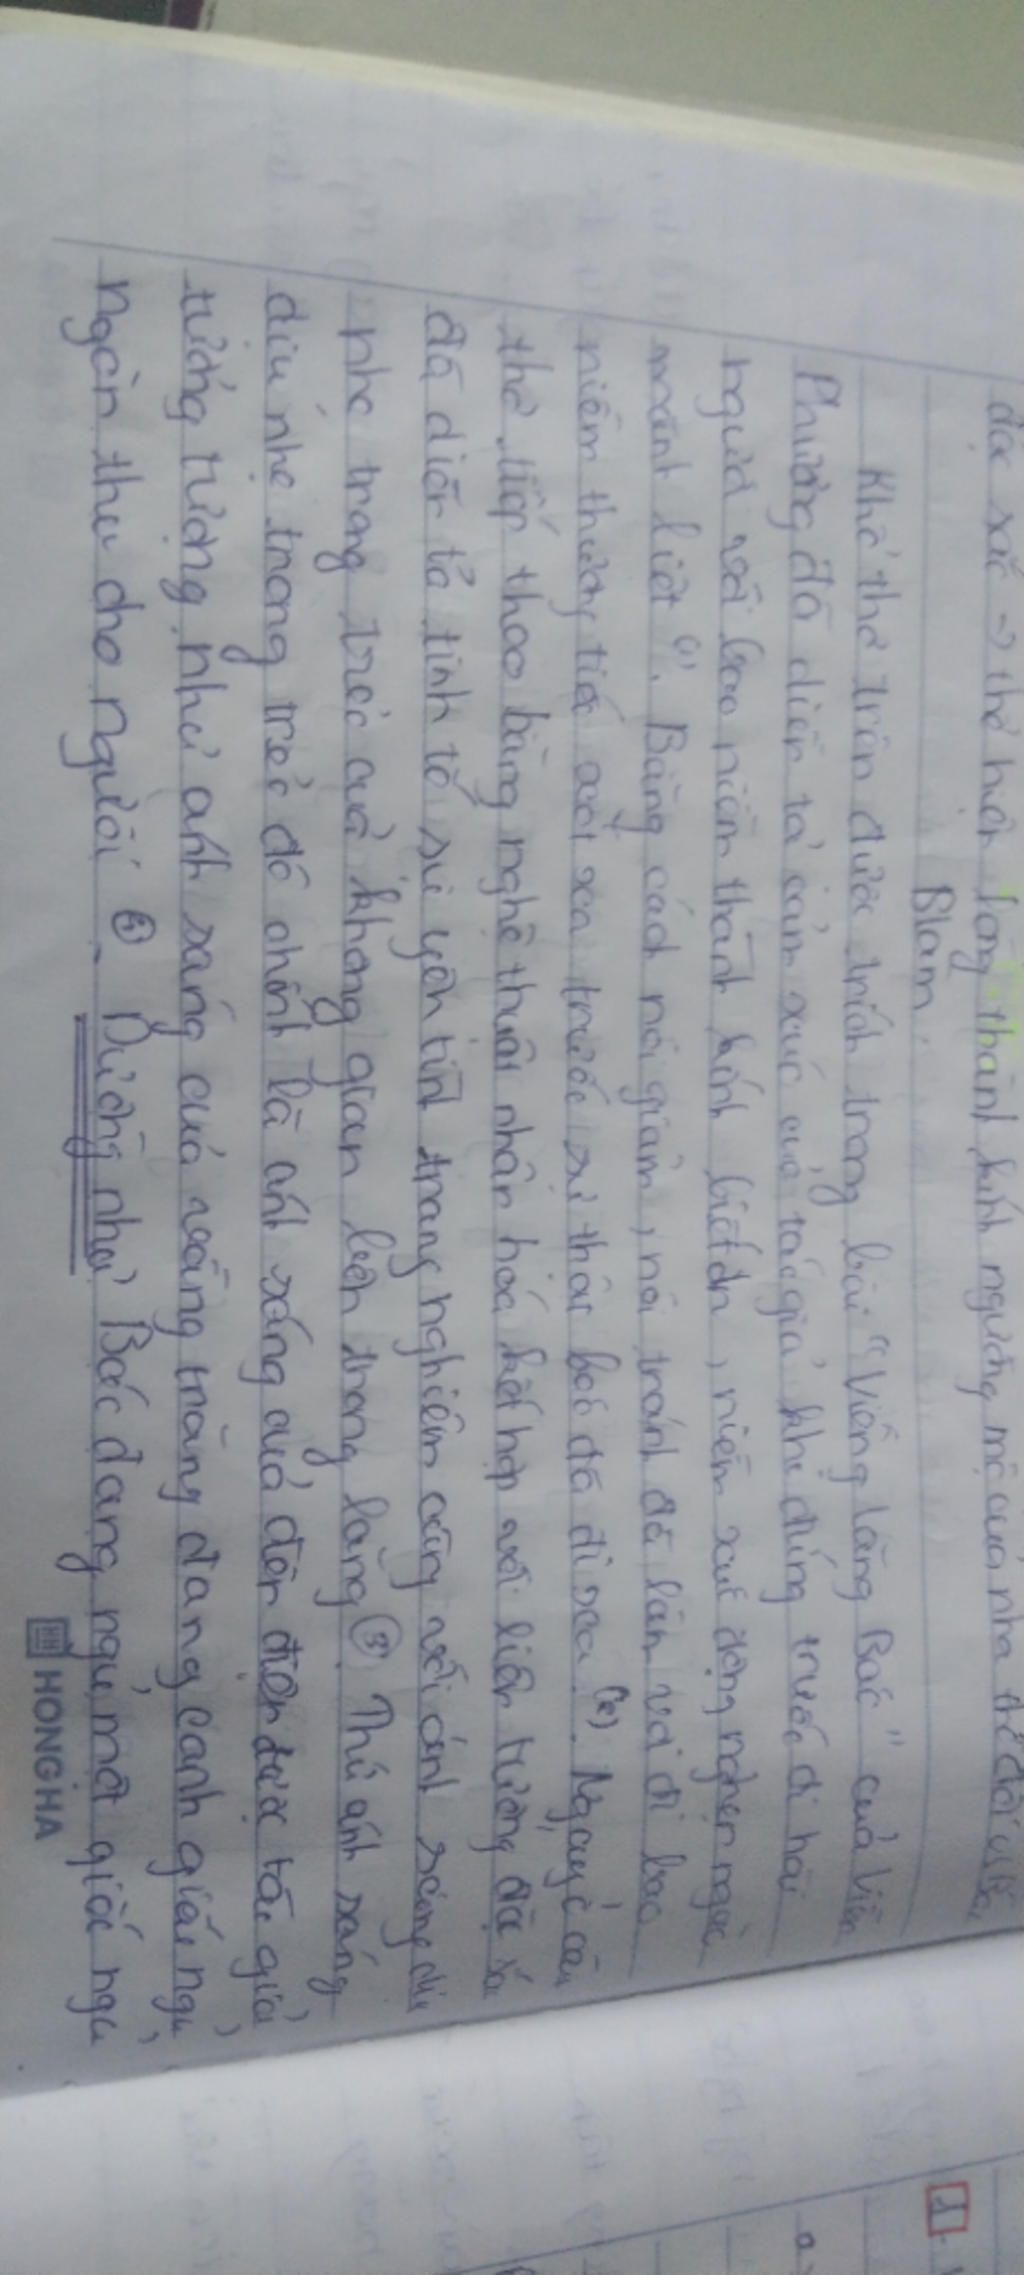 đặc sắc -> thể hiện lòng thành kính ngưỡng mộ của nhà thơ đối với
Blàm
Khổ thơ trên được trích trong bài "Viếng lăng Bác" của Viễn
Phương đã diễn tả cảm xúc của tác giả khi đứng trước di hài
người với bao niềm thành kính biết ơn, niềm xúc động nghẹn ngào
mãnh liệt (1). Bằng cách nói giảm, nói tránh đã làm vơi đi bao
niềm thương tiếc xót xa trước sự thật bác đã đi xa (2). Ngay ở câu
thơ tiếp theo bằng nghệ thuật nhân hóa kết hợp với liên tưởng đặc sắc
đã diễn tả tinh tế sự yên tĩnh trang nghiêm cùng với ánh sáng dịu
nhẹ trong trẻo của không gian bên trong lăng (3). Thứ ánh sáng
dịu nhẹ trong trẻo đó chính là ánh sáng của đèn điện được tác giả
tưởng tượng như ánh sáng của vầng trăng đang canh giấc ngủ
ngàn thu cho người (4). Dường như Bác đang ngủ một giấc ngủ
HONG HA
1
a,